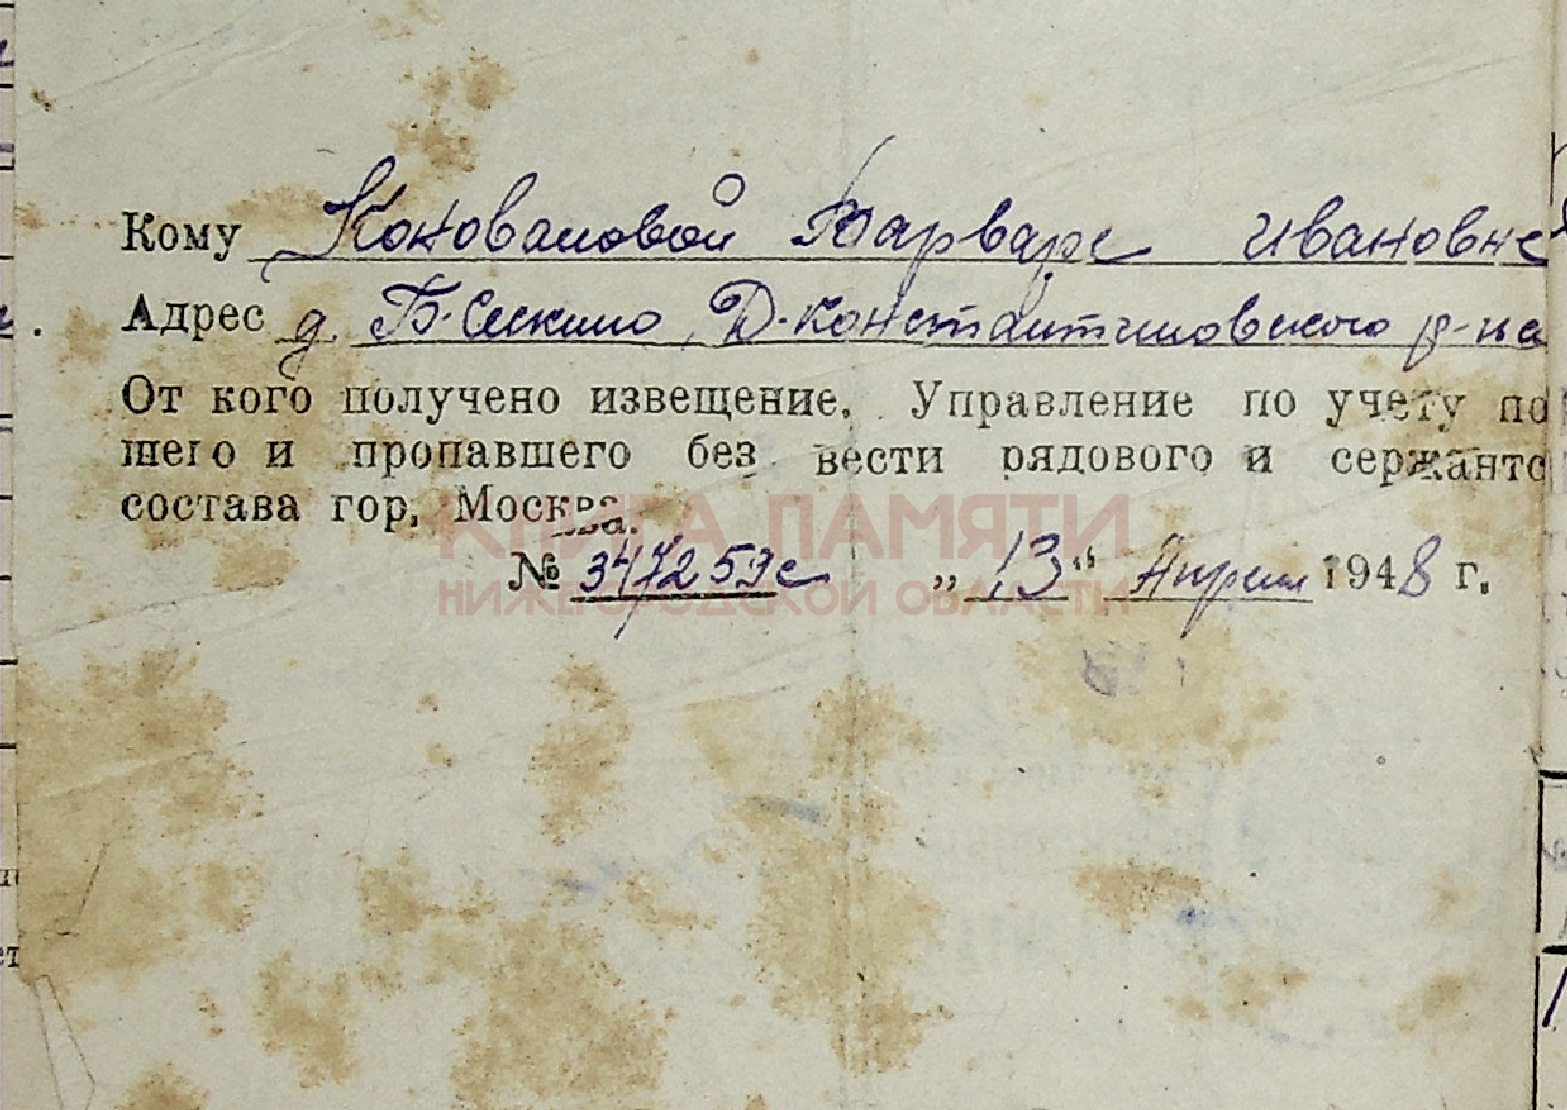 Кому Коноваловой Варваре Ивановне
Адрес д. Б. Сескино, Д-Константиновского р-на
От кого получено извещение. Управление по учету по
шего и пропавшего без вести рядового и сержантс
состава гор. Москва.
КНИГА ПАМЯТИ
№ 347259с „13“ Апреля 1948 г.
НИЖЕГОРОДСКОЙ ОБЛАСТИ